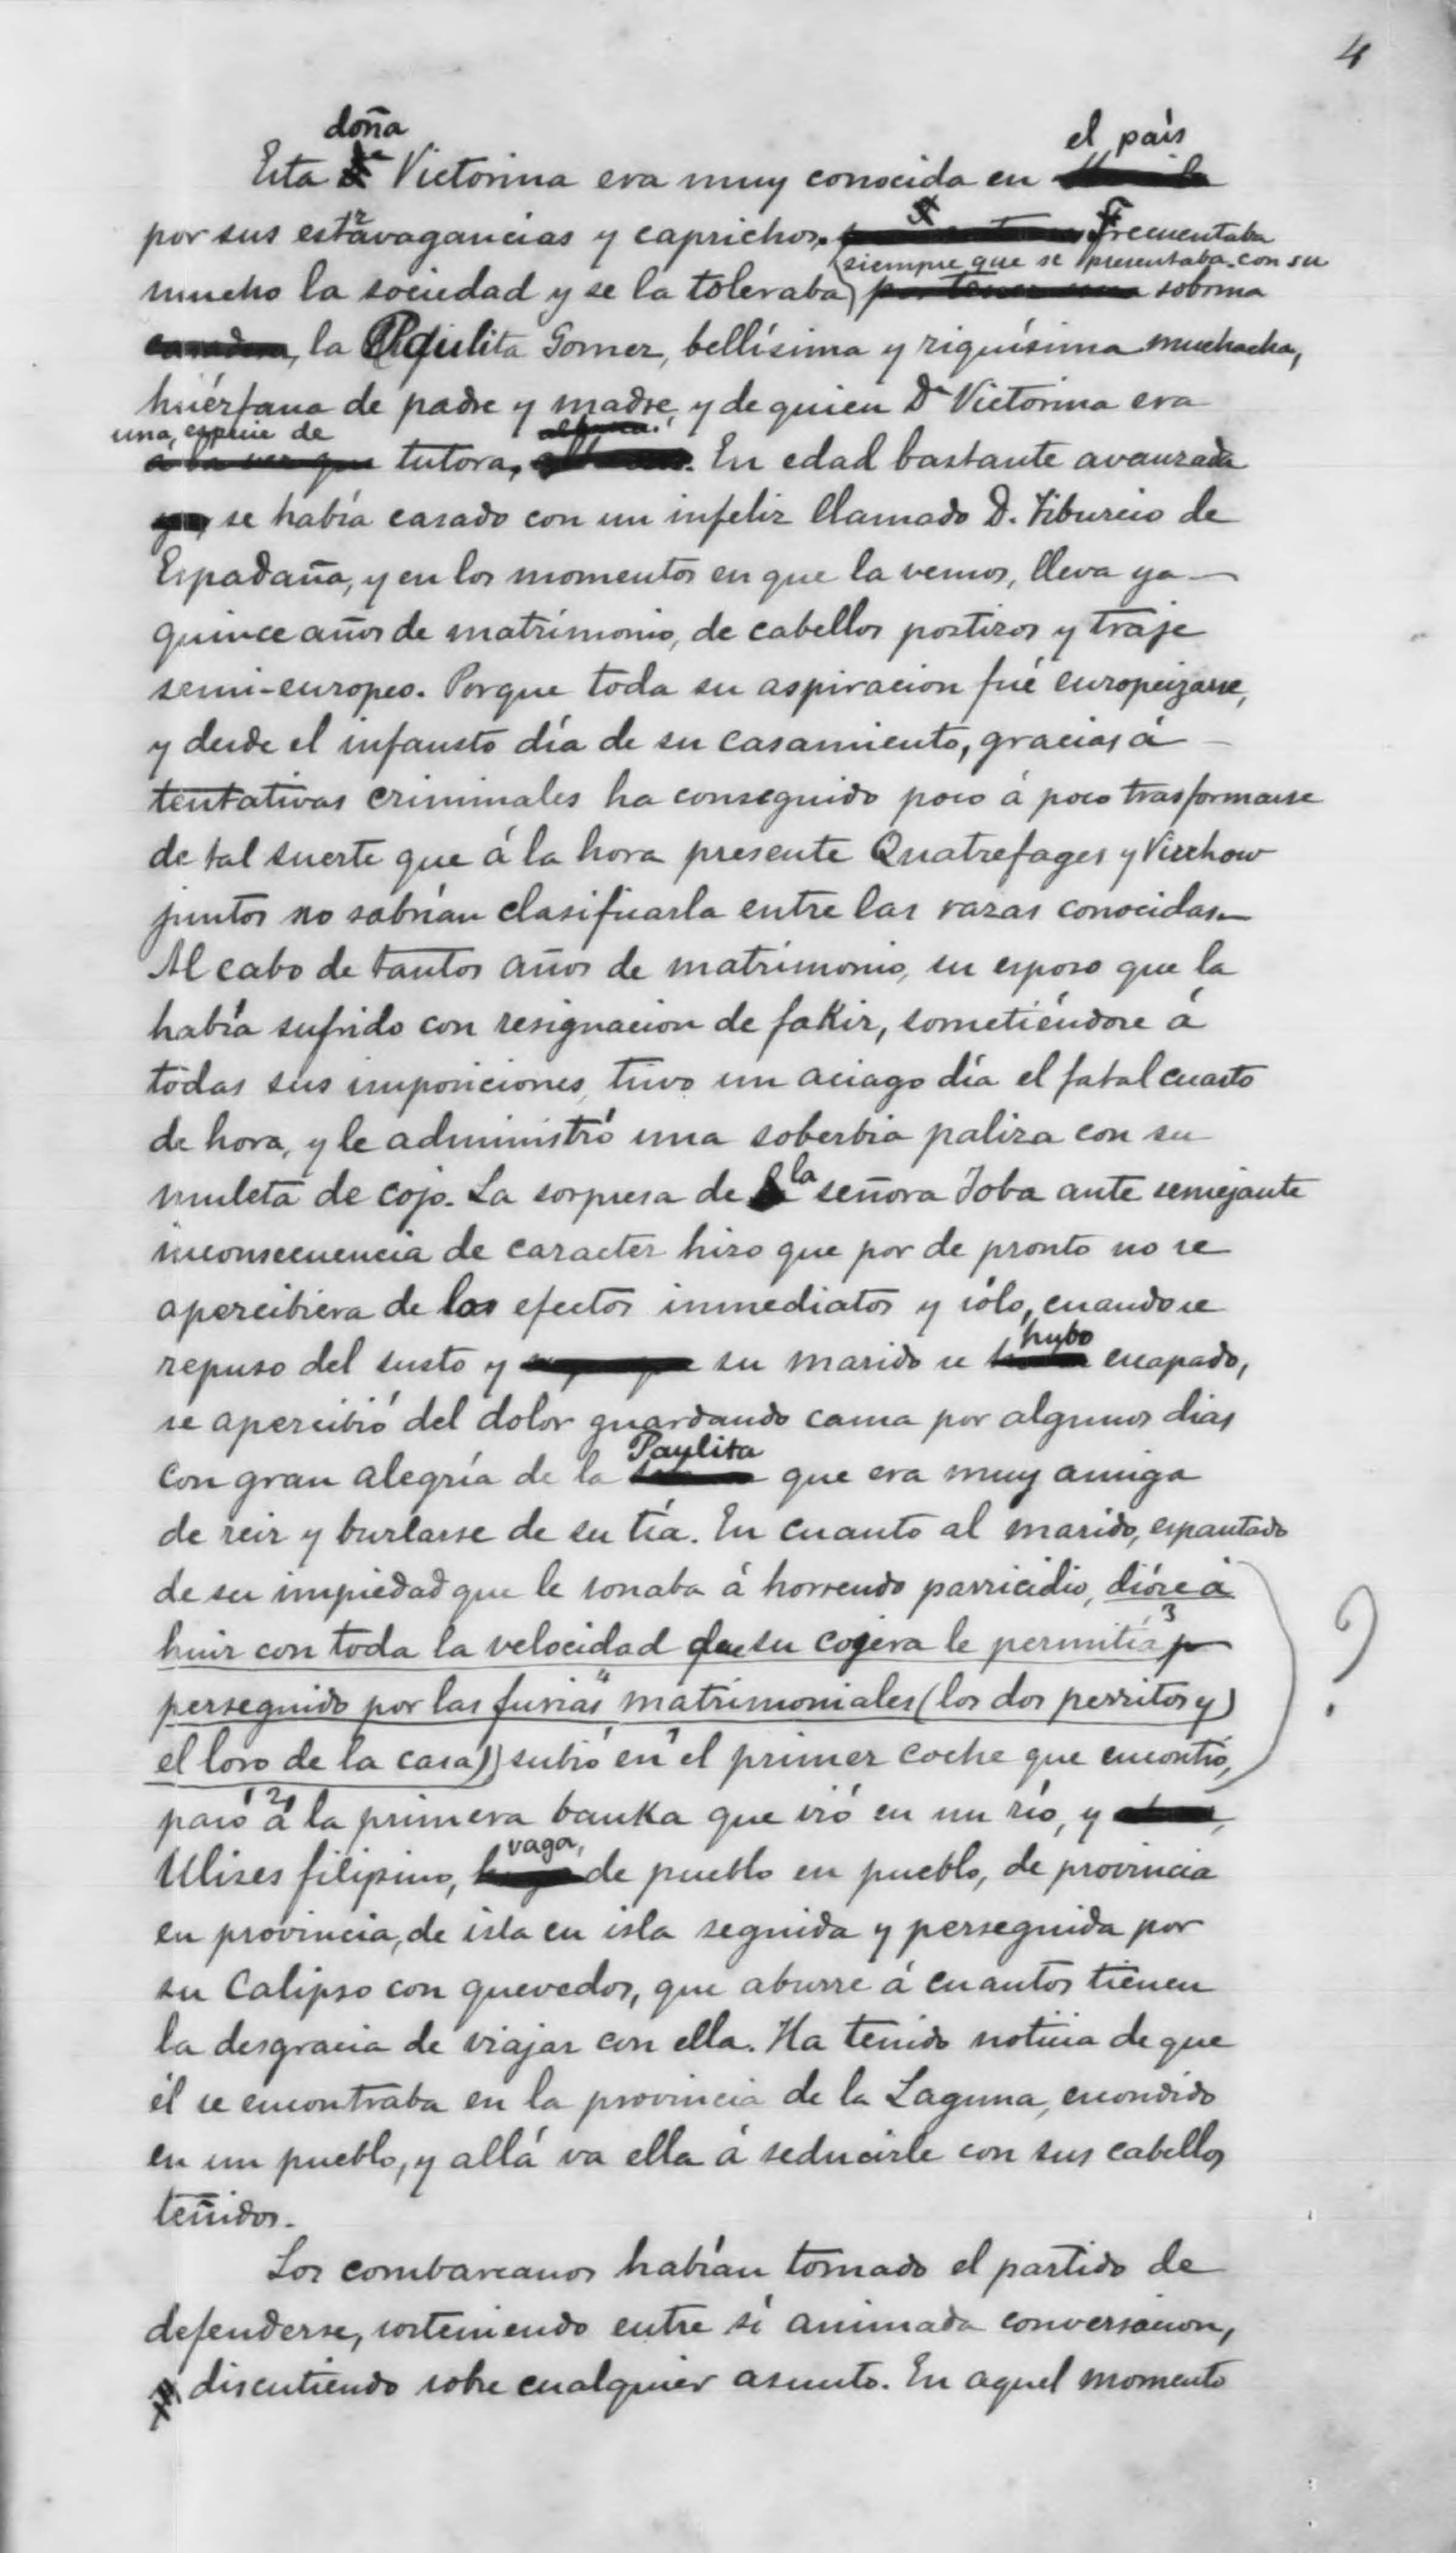 4
doña
el país
Esta Victorina era muy conocida en
por sus estravagancias y caprichos. Frecuentaba
siempre que se presentaba con su
mucho la sociedad y se la toleraba sobrina
la Paulita Gomez, bellísima y riquísima muchacha,
huérfana de padre y madre, y de quien Dª Victorina era
una especie de
tutora, . En edad bastante avanzada
se había casado con un infeliz llamado D. Tiburcio de
Espadaña, y en los momentos en que la vemos, lleva ya
quince años de matrimonio, de cabellos postizos y traje
semi-europeo. Porque toda su aspiracion fué europeizarse,
y desde el infausto día de su casamiento, gracias á
tentativas criminales ha conseguido poco á poco trasformarse
de tal suerte que á la hora presente Quatrefages y Virchow
juntos no sabrían clasificarla entre las razas conocidas.
Al cabo de tantos años de matrimonio, su esposo que la
había sufrido con resignacion de fakir, sometiéndose á
todas sus imposiciones, tuvo un aciago día el fatal cuarto
de hora, y le administró una soberbia paliza con su
muleta de cojo. La sorpresa de la señora Joba ante semejante
inconsecuencia de caracter hizo que por de pronto no se
apercibiera de los efectos inmediatos y sólo, cuando se
hubo
repuso del susto y su marido se escapado,
se apercibió del dolor guardando cama por algunos dias
Paulita
con gran alegría de la que era muy amiga
de reir y burlarse de su tía. En cuanto al marido, espantado
de su impiedad que le sonaba á horrendo parricidio, dióse á
huir con toda la velocidad que su cojera le permitía 3 p
perseguido por las furias matrimoniales (los dos perritos y
el loro de la casa) subió en el primer coche que encontró,
pasó á la primera banka que vió en un río, y
vaga,
Ulises filipino, de pueblo en pueblo, de provincia
en provincia, de isla en isla seguida y perseguida por
su Calipso con quevedos, que aburre á cuantos tienen
la desgracia de viajar con ella. Ha tenido noticia de que
él se encontraba en la provincia de la Laguna, escondido
en un pueblo, y allá va ella á seducirle con sus cabellos
teñidos.
Los combarcanos habían tomado el partido de
defenderse, sosteniendo entre sí animada conversacion,
discutiendo sobre cualquier asunto. En aquel momento
?